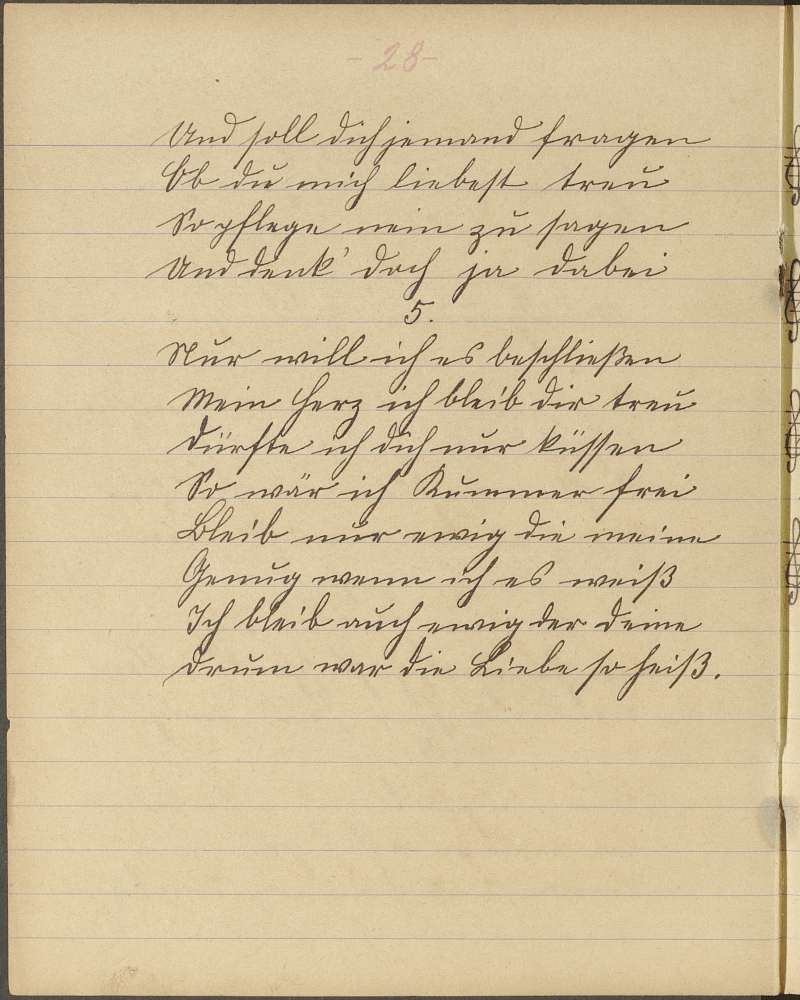 -28-
Und soll dich jemand fragen
Ob du mich liebest treu
So pflege nein zu sagen
Und denk' doch ja dabei
5.
Nur will ich es beschließen
Mein Herz ich bleib dir treu
Dürfte ich dich nur küssen
So wär ich Kummer frei
Bleib nur ewig die meine
Genug wenn ich es weiß
Ich bleib auch ewig der deine
Drum war die Liebe so heiß.